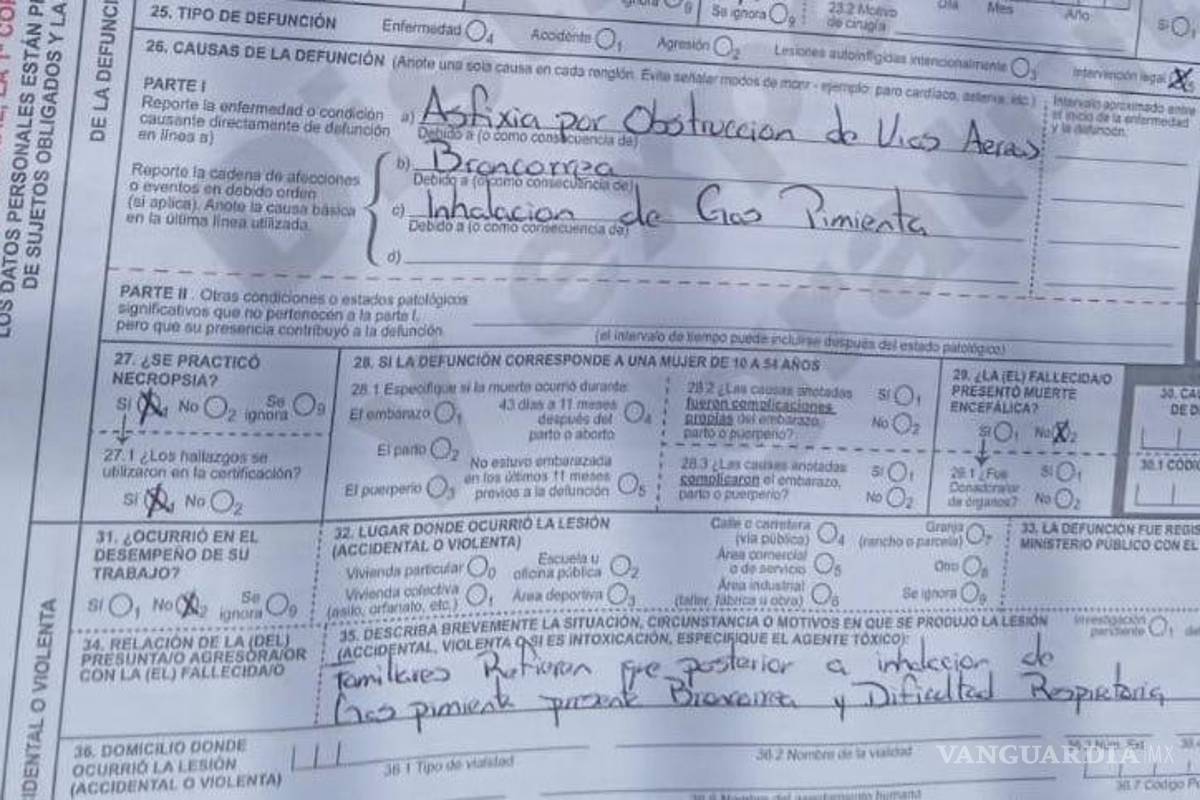 LOS DATOS PERSONALES ESTÁN
DE SUJETOS OBLIGADOS Y LA
DE LA DEFUNCI
23.2 Motivo
de cirugía
Se ignora 9
Día Mes Año
Sí 1
25. TIPO DE DEFUNCIÓN Enfermedad 4 Accidente 1 Agresión 2 Lesiones autoinfligidas intencionalmente 3 Intervención legal X
26. CAUSAS DE LA DEFUNCIÓN (Anote una sola causa en cada renglón. Evite señalar modos de morir - ejemplo: paro cardíaco, astenia, etc.)
Intervalo aproximado entre
el inicio de la enfermedad
y la defunción.
PARTE I
Reporte la enfermedad o condición
causante directamente de defunción
en línea a)
a) Asfixia por Obstruccion de Vias Aereas
Debido a (o como consecuencia de)
Reporte la cadena de afecciones
o eventos en debido orden
(si aplica). Anote la causa básica
en la última línea utilizada.
b) Broncorrea
Debido a (o como consecuencia de)
c) Inhalacion de Gas Pimienta
Debido a (o como consecuencia de)
d)
PARTE II . Otras condiciones o estados patológicos
significativos que no pertenecen a la parte I,
pero que su presencia contribuyó a la defunción
(el intervalo de tiempo puede incluirse después del estado patológico)
27. ¿SE PRACTICÓ
NECROPSIA?
Sí X No 2 Se ignora 9
27.1 ¿Los hallazgos se
utilizaron en la certificación?
Sí X No 2
28. SI LA DEFUNCIÓN CORRESPONDE A UNA MUJER DE 10 A 54 AÑOS
28.1 Especifique si la muerte ocurrió durante:
El embarazo 1
43 días a 11 meses
después del
parto o aborto 4
El parto 2
El puerperio 3
No estuvo embarazada
en los últimos 11 meses
previos a la defunción 5
28.2 ¿Las causas anotadas
fueron complicaciones
propias del embarazo,
parto o puerperio?
Sí 1
No 2
28.3 ¿Las causas anotadas
complicaron el embarazo,
parto o puerperio?
Sí 1
No 2
29. ¿LA (EL) FALLECIDA/O
PRESENTÓ MUERTE
ENCEFÁLICA?
Sí 1 No X 2
¿Fue
Donadora/or
de órganos?
Sí 1
No 2
30. CAU
DE D
30.1 CÓDIG
CIDENTAL O VIOLENTA
31. ¿OCURRIÓ EN EL
DESEMPEÑO DE SU
TRABAJO?
Sí 1 No X 2 Se ignora 9
32. LUGAR DONDE OCURRIÓ LA LESIÓN
(ACCIDENTAL O VIOLENTA)
Vivienda particular 0
Vivienda colectiva
(asilo, orfanato, etc.) 1
Escuela u
oficina pública 2
Área deportiva 3
Calle o carretera
(vía pública) 4
Área comercial
o de servicio 5
Área industrial
(taller, fábrica u obra) 6
Granja
(rancho o parcela) 7
Otro 8
Se ignora 9
33. LA DEFUNCIÓN FUE REGIS
MINISTERIO PÚBLICO CON EL
34. RELACIÓN DE LA (DEL)
PRESUNTA/O AGRESORA/OR
CON LA (EL) FALLECIDA/O
35. DESCRIBA BREVEMENTE LA SITUACIÓN, CIRCUNSTANCIA O MOTIVOS EN QUE SE PRODUJO LA LESIÓN
(ACCIDENTAL, VIOLENTA O SI ES INTOXICACIÓN, ESPECIFIQUE EL AGENTE TÓXICO):
Investigación
pendiente 1
Familiares Refieren que posterior a inhalacion de
Gas pimienta presente Broncorrea y Dificultad Respiratoria
36. DOMICILIO DONDE
OCURRIÓ LA LESIÓN
(ACCIDENTAL O VIOLENTA)
36.1 Tipo de vialidad
36.2 Nombre de la vialidad
36.7 Código P
VANGUARDIA MX